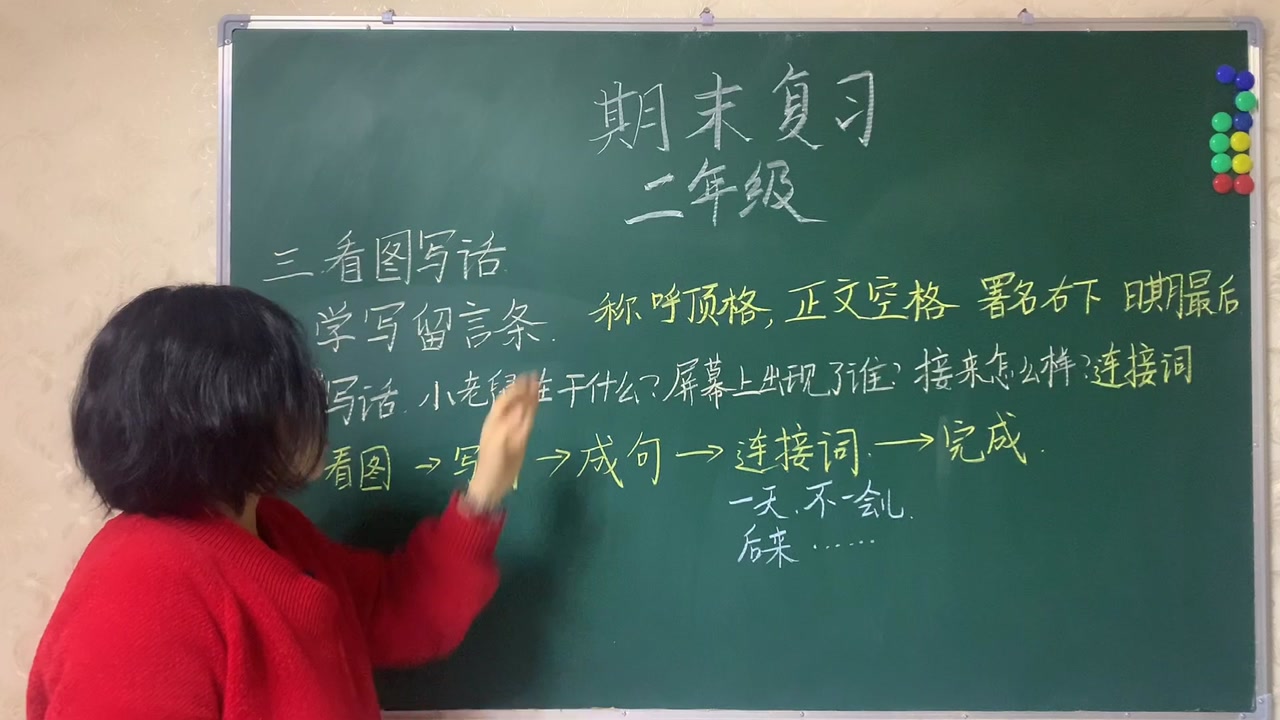 期末复习
二年级
三.看图写话
学写留言条. 称呼顶格,正文空格 署名右下 日期最后
写话.小老鼠在干什么?屏幕上出现了谁?接来怎么样?连接词
看图→写 →成句→连接词.→完成.
一天、不一会儿.
后来……